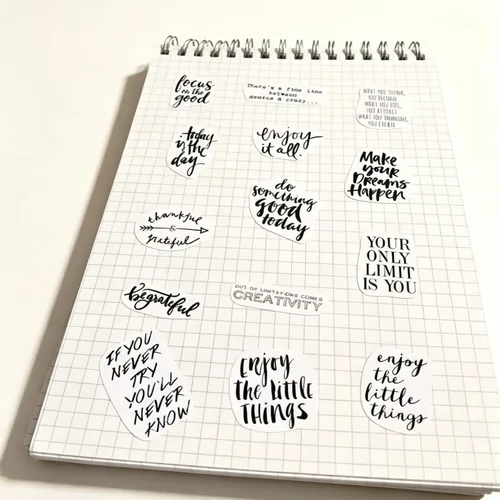 focus
on the
good
There's a fine line
between
genius & crazy...
WHAT YOU THINK,
YOU BECOME
WHAT YOU FEEL,
YOU ATTRACT
WHAT YOU IMAGINE,
YOU CREATE
today
is the
day
enjoy
it all.
Make
your
Dreams
Happen
do
something
good
today
thankful
&
grateful
YOUR
ONLY
LIMIT
IS YOU
be grateful
OUT OF LIMITATIONS COMES
CREATIVITY
IF YOU
NEVER
TRY
YOU'LL
NEVER
KNOW
Enjoy
the little
THINGS
enjoy
the
little
things